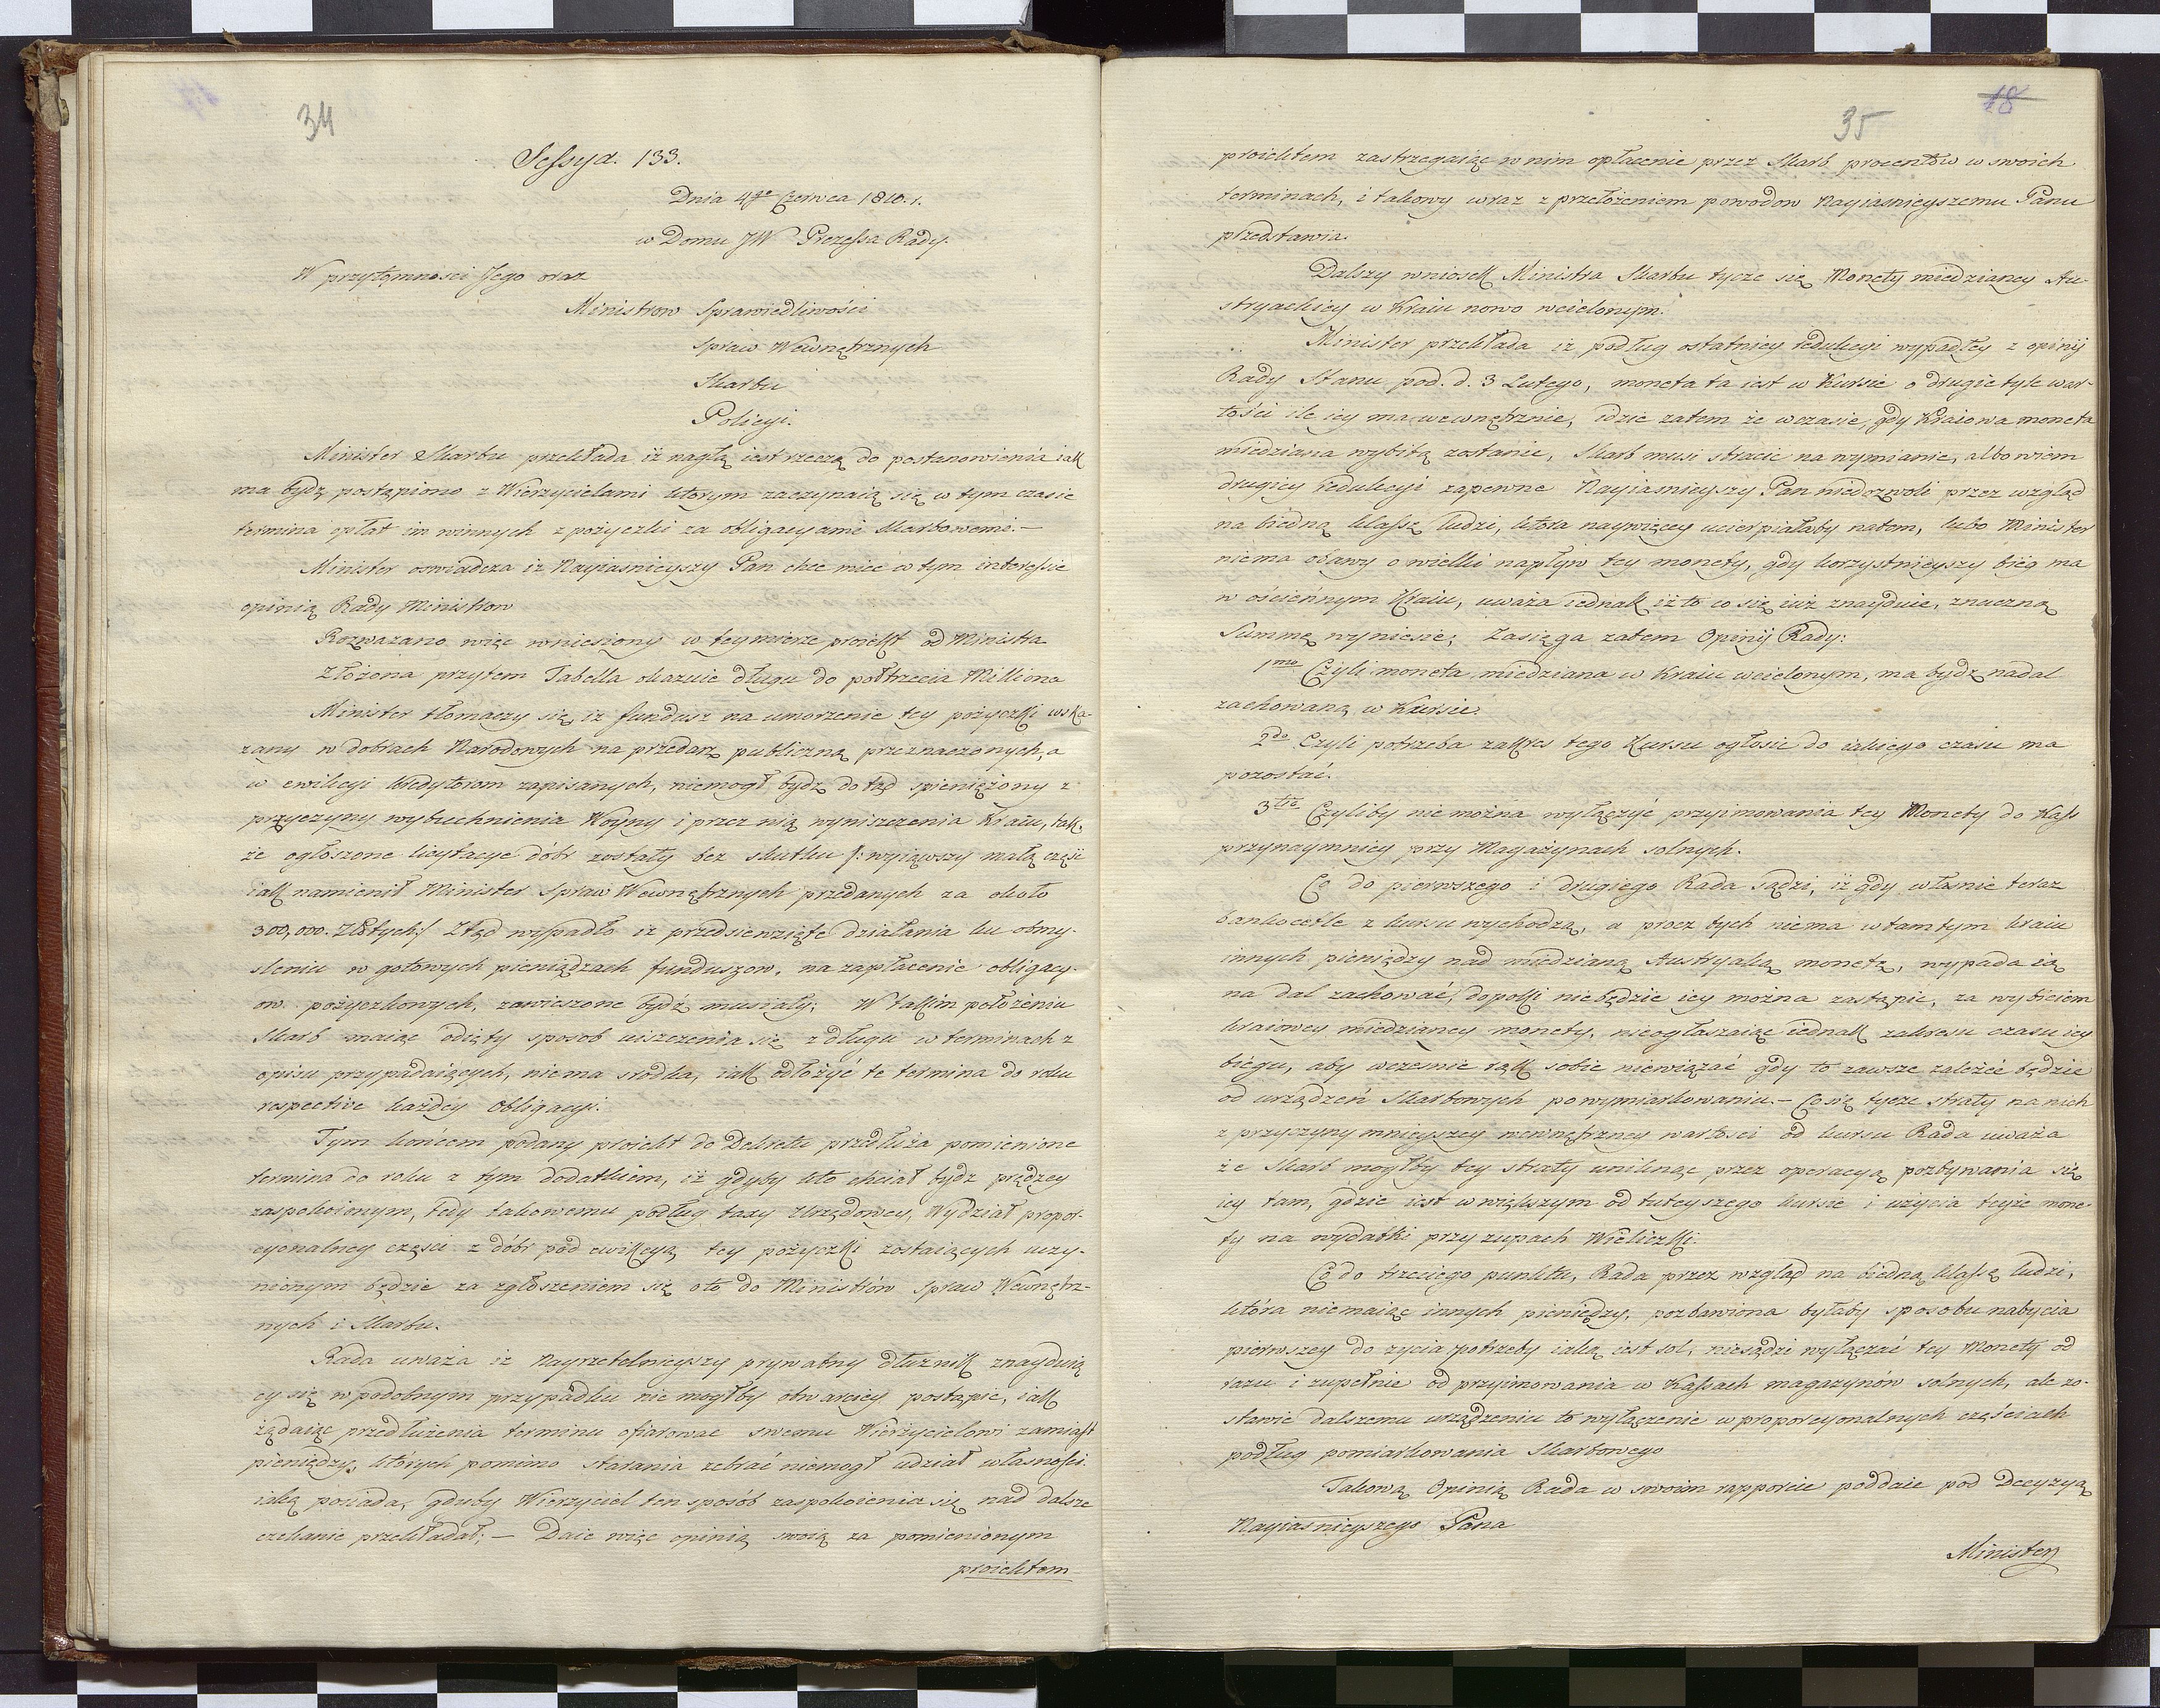 34
Sessya. 133.
Dnia 4go Czerwca 1810. r.
w Domu JW Prezessa Rady.
W przytomnosci Jego oraz
Ministrow Sprawiedliwości
Spraw Wewnętrznych
Skarbu
Policyi.
Minister Skarbu przekłada iż nagłą iest rzeczą do postanowienia iak
ma bydz postąpiono z Wierzycielami ktorym zaczynaią się w tym czasie
termina opłat im winnych z pożyczki za obligacyami Skarbowemi. —
Minister oswiadcza iż Nayiasnieyszy Pan chce mieć w tym interessie
opinią Rady Ministrow
Rozważano więc wniesiony w tey mierze proiekt od Ministra
Złożona przytem Tabella okazuie długu do półtrzecia Milliona
Minister tłomaczy się, iż fundusz na umorzenie tey pożyczki wska-
zany w dobrach Narodowych na przedarz publiczną przeznaczonych, a
w ewikcyi Kredytorom zapisanych, niemogł bydz dotąd spieniężony z
przyczyny wybuchnienia Woyny i przez nią wyniszczenia Kraiu, tak,
że ogłoszone licytacye dóbr zostały bez skutku /: wyiąwszy małą część
iak namienił Minister Spraw Wewnętrznych przedanych za około
300,000. Złotych :/ Ztąd wypadło iż przedsiewzięte działania ku obmy-
sleniu w gotowych pieniądzach funduszow, na zapłacenie obligacy-
ow pożyczkowych, zawieszone bydź musiały; W takim położeniu
Skarb maiąc odięty sposob uiszczenia się z długu w terminach z
opisu przypadaiących, niema srodka, iak odłożyć te termina do roku
respective każdey Obligacyi.
Tym końcem podany proiekt do Dekretu przedłuża pomienione
termina do roku z tym dodatkiem, iż gdyby kto chciał bydz prędzey
zaspokoionym, tedy takowemu podług taxy Urzędowey, Wydział propor-
cyonalney części z dóbr pod ewikcyą tey pożyczki zostaiących uczy-
nionym będzie za zgłoszeniem się o to do Ministrów Spraw Wewnętrz-
nych i Skarbu.
Rada uważa iż Nayrzetelnieyszy prywatny dłużnik znayduią
cy się w podobnym przypadku nie mogłby otwarciey postąpić, iak
żądaiąc przedłużenia terminu ofiarować swemu Wierzycielowi zamiast
pieniędzy, których pomimo starania zebrać niemogł udział własności
iaką posiada, gdyby Wierzyciel ten sposób zaspokoienia się nad dalsze
czekanie przekładał; — Daie więc opinią swoią za pomienionym
proiektem
18
35
proiektem zastrzegaiąc w nim opłacenie przez Skarb procentów w swoich
terminach, i takowy wraz z przełożeniem powodow Nayiasnieyszemu Panu
przedstawia.
Dalszy wniosek Ministra Skarbu tycze się Monety miedzianey Au-
stryackiey w Kraiu nowo wcielonym.
Minister przekłada iż podług ostatniey redukcyi wypadłey z opinij
Rady Stanu pod. d. 3 Lutego, moneta ta iest w Kursie o drugie tyle war-
tości ile iey ma wewnętrznie, idzie zatem że w czasie, gdy Kraiowa moneta
miedziana wybitą zostanie, Skarb musi stracić na wymianie, albowiem
drugiey redukcyi zapewne Nayiasnieyszy Pan niedozwoli przez wzgląd
na biedną klassę ludzi, ktora naywięcey ucierpiałaby natem, lubo Minister
niema obawy o wielki napływ tey monety, gdy korzystnieyszy bieg ma
w ościennym Kraiu, uważa iednak iż to co się iuż znayduie, znaczną
Summę wyniesie; Zasięga zatem Opinij Rady:
1mo Czyli moneta miedziana w Kraiu wcielonym, ma bydz nadal
zachowaną w Kursie.
2do Czyli potrzeba zakres tego Kursu ogłosić do iakiego czasu ma
pozostać.
3tio Czyliby nie można wyłączyć przyimowania tey Monety do Kass
przynaymniey przy Magazynach solnych.
Co do pierwszego i drugiego Rada sądzi, iż gdy własnie teraz
bankocetle z kursu wychodzą, a procz tych niema w tamtym kraiu
innych pieniędzy nad miedzianą Austryacką monetą, wypada ią
na dal zachować, dopoki niebędzie iey można zastąpić, za wybiciem
kraiowey miedzianey monety, nieogłaszaiąc iednak zakresu czasu iey
biegu, aby wczesnie rąk sobie niewiązać gdy to zawsze zależeć będzie
od urządzeń Skarbowych po wymiarkowaniu. — Co się tycze straty na nich
z przyczyny mnieyszey wewnętrzney wartosci od kursu Rada uważa
że Skarb mogłby tey straty uniknąć przez operacyą pozbywania się
iey tam, gdzie iest w większym od tuteyszego kursie i użycia teyże mone-
ty na wydatki przy zupach Wieliczki.
Co do trzeciego punktu, Rada przez wzgląd na biedną klassę ludzi,
która niemaiąc innych pieniędzy, pozbawiona byłaby sposobu nabycia
pierwszey do życia potrzeby iaką iest sol, niesądzi wyłączać tey Monety od
razu i zupełnie od przyimowania w Kassach magazynów solnych, ale zo-
stawić dalszemu urządzeniu to wyłączenie w proporcyonalnych częściach
podług pomiarkowania Skarbowego
Takową Opinią Rada w swoim rapporcie poddaie pod Decyzyą
Nayiasnieyszego Pana
Minister